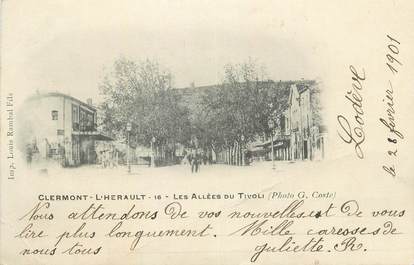 Imp. Louis Rambal Fils
Lodève
le 28 février 1901
CLERMONT-L'HERAULT - 16 - LES ALLÉES DU TIVOLI (Photo G. Coste)
Nous attendons de vos nouvelles et de vous
lire plus longuement. Mille caresses de
nous tous Juliette. R.